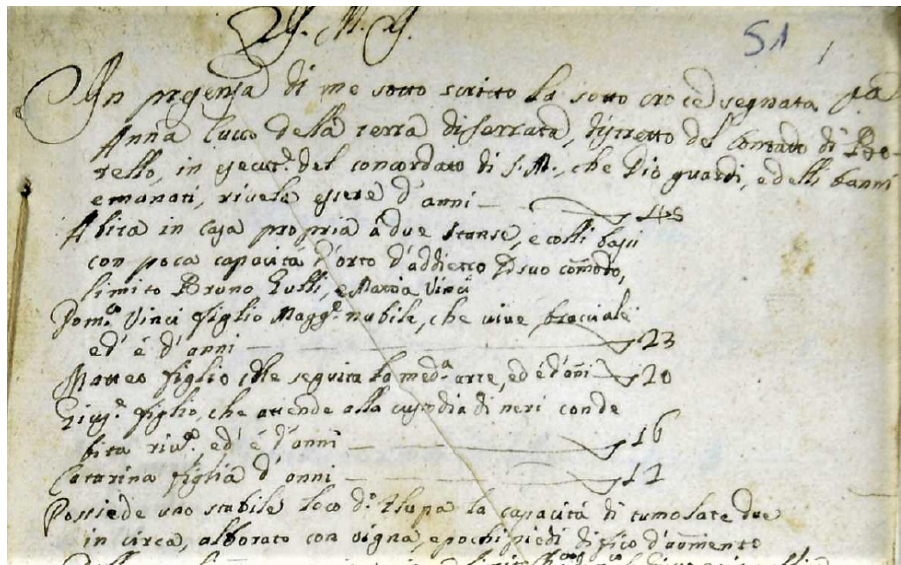 J. M. J.
51
In presenza di me sotto scritto la sotto croce segnata
Anna Cucco della terra di Serrata, distretto del Contado di Bor-
rello, in esecut.e del concordato di S. M., che Dio guardi, e delli banni
emanati, rivela essere d'anni 48
Abita in casa propria a due stanse, e colli bassi
con poca capacità d'orto d'addietro p suo comodo,
limito Bruno Lulli, e Mattia Vinci
Dom.co Vinci figlio Magg.e nubile, che vive bracciale
ed' è d'anni 23
Matteo figlio che seguita la med.a arte, ed è d'anni 20
figlio, che attende alla custodia di neri con de
bita ed' è d'anni 16
Catarina figlia d'anni 12
Possiede uno stabile loco d.o la capacità di tumolate due
in circa, alborato con vigna, e pochi piedi di fico d'